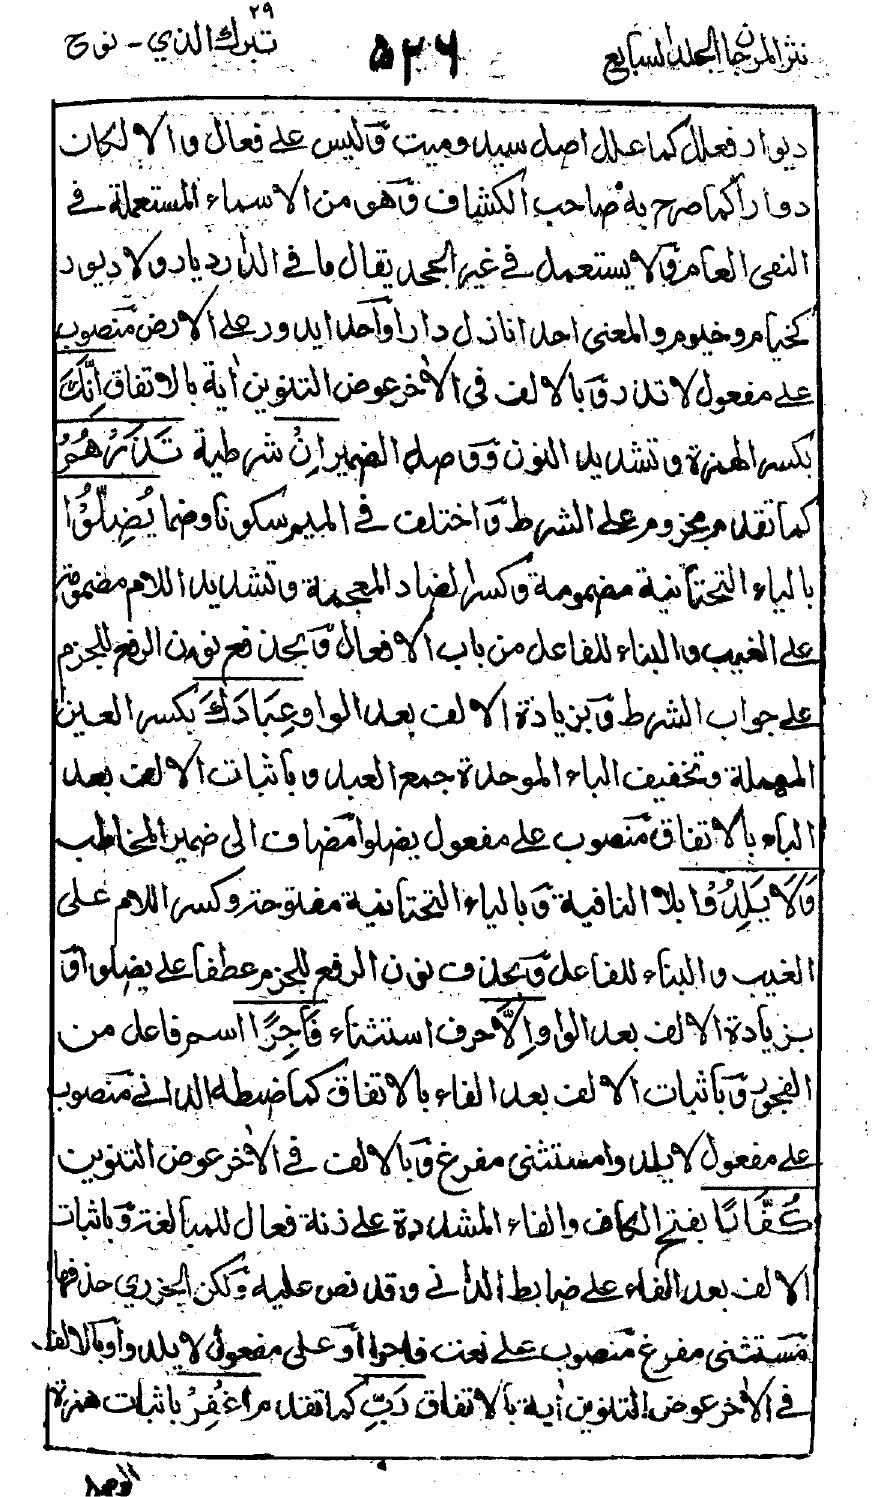 نثر المرجان الجلد السابع
٥٢٦
تبرك الذي ٢٩ - نوح
ديوار فعلل كما علل اصل سيد وميت وَليس على فعال والا لكان
دوارا كما صرح به صاحب الكشاف وَهو من الاسماء المستعملة في
النفي العام وَلا يستعمل في غير الجحد يقال ما في الدار ديار ولا ديور
كخيام وخيوم والمعنى احدا نازل دارا وَاحدا يدور على الارض مَنصوب
على مفعول لا تذر وَبالالف في الاٰخر عوض التنوين اٰية بالاتفاق اِنَّكَ
بكسر الهمزة وتشديد النون وَوصل الضمير اِنْ شرطية تَذَرْهُمُ
كما تقدم مجزوم على الشرط وَاختلف في الميم سكونا وضما يُضِلُّوْا
بالياء التحتانية مضمومة وَكسر الضاد المعجمة وتشديد اللام مضمومة
على الغيب والبناء للفاعل من باب الافعال وَبحذف نون الرفع للجزم
على جواب الشرط وَبزيادة الالف بعد الواو عِبَادَكَ بكسر العين
المهملة وتخفيف الباء الموحدة جمع العبد وباثبات الالف بعد
الباء بالاتفاق مَنصوب على مفعول يضلوا مَضاف الى ضمير المخاطب
وَلَا يَلِدُوْا بلا النافية وَبالياء التحتانية مفتوحة وكسر اللام على
الغيب والبناء للفاعل وَبحذف نون الرفع للجزم عطفا على يضلوا وَ
بزيادة الالف بعد الواو اِلَّا حرف استثناء فَاجِرًا اسم فاعل من
الفجور وَباثبات الالف بعد الفاء بالاتفاق كما ضبطه الداني مَنصوب
على مفعول لا يلدوا مستثنى مفرغ وَبالالف في الاٰخر عوض التنوين
كُفَّارًا بفتح الكاف والفاء المشددة على زنة فعال للمبالغة وَباثبات
الالف بعد الفاء على ضابط الداني وقد نص عليه وَلكن الجزري حذفها
مَستثنى مفرغ مَنصوب على نعت فاجرا اَو على مفعول لا يلدوا وَبالالف
في الاٰخر عوض التنوين اٰية بالاتفاق رَبِّ كما تقدم اغْفِرْ باثبات همزة
الوصل